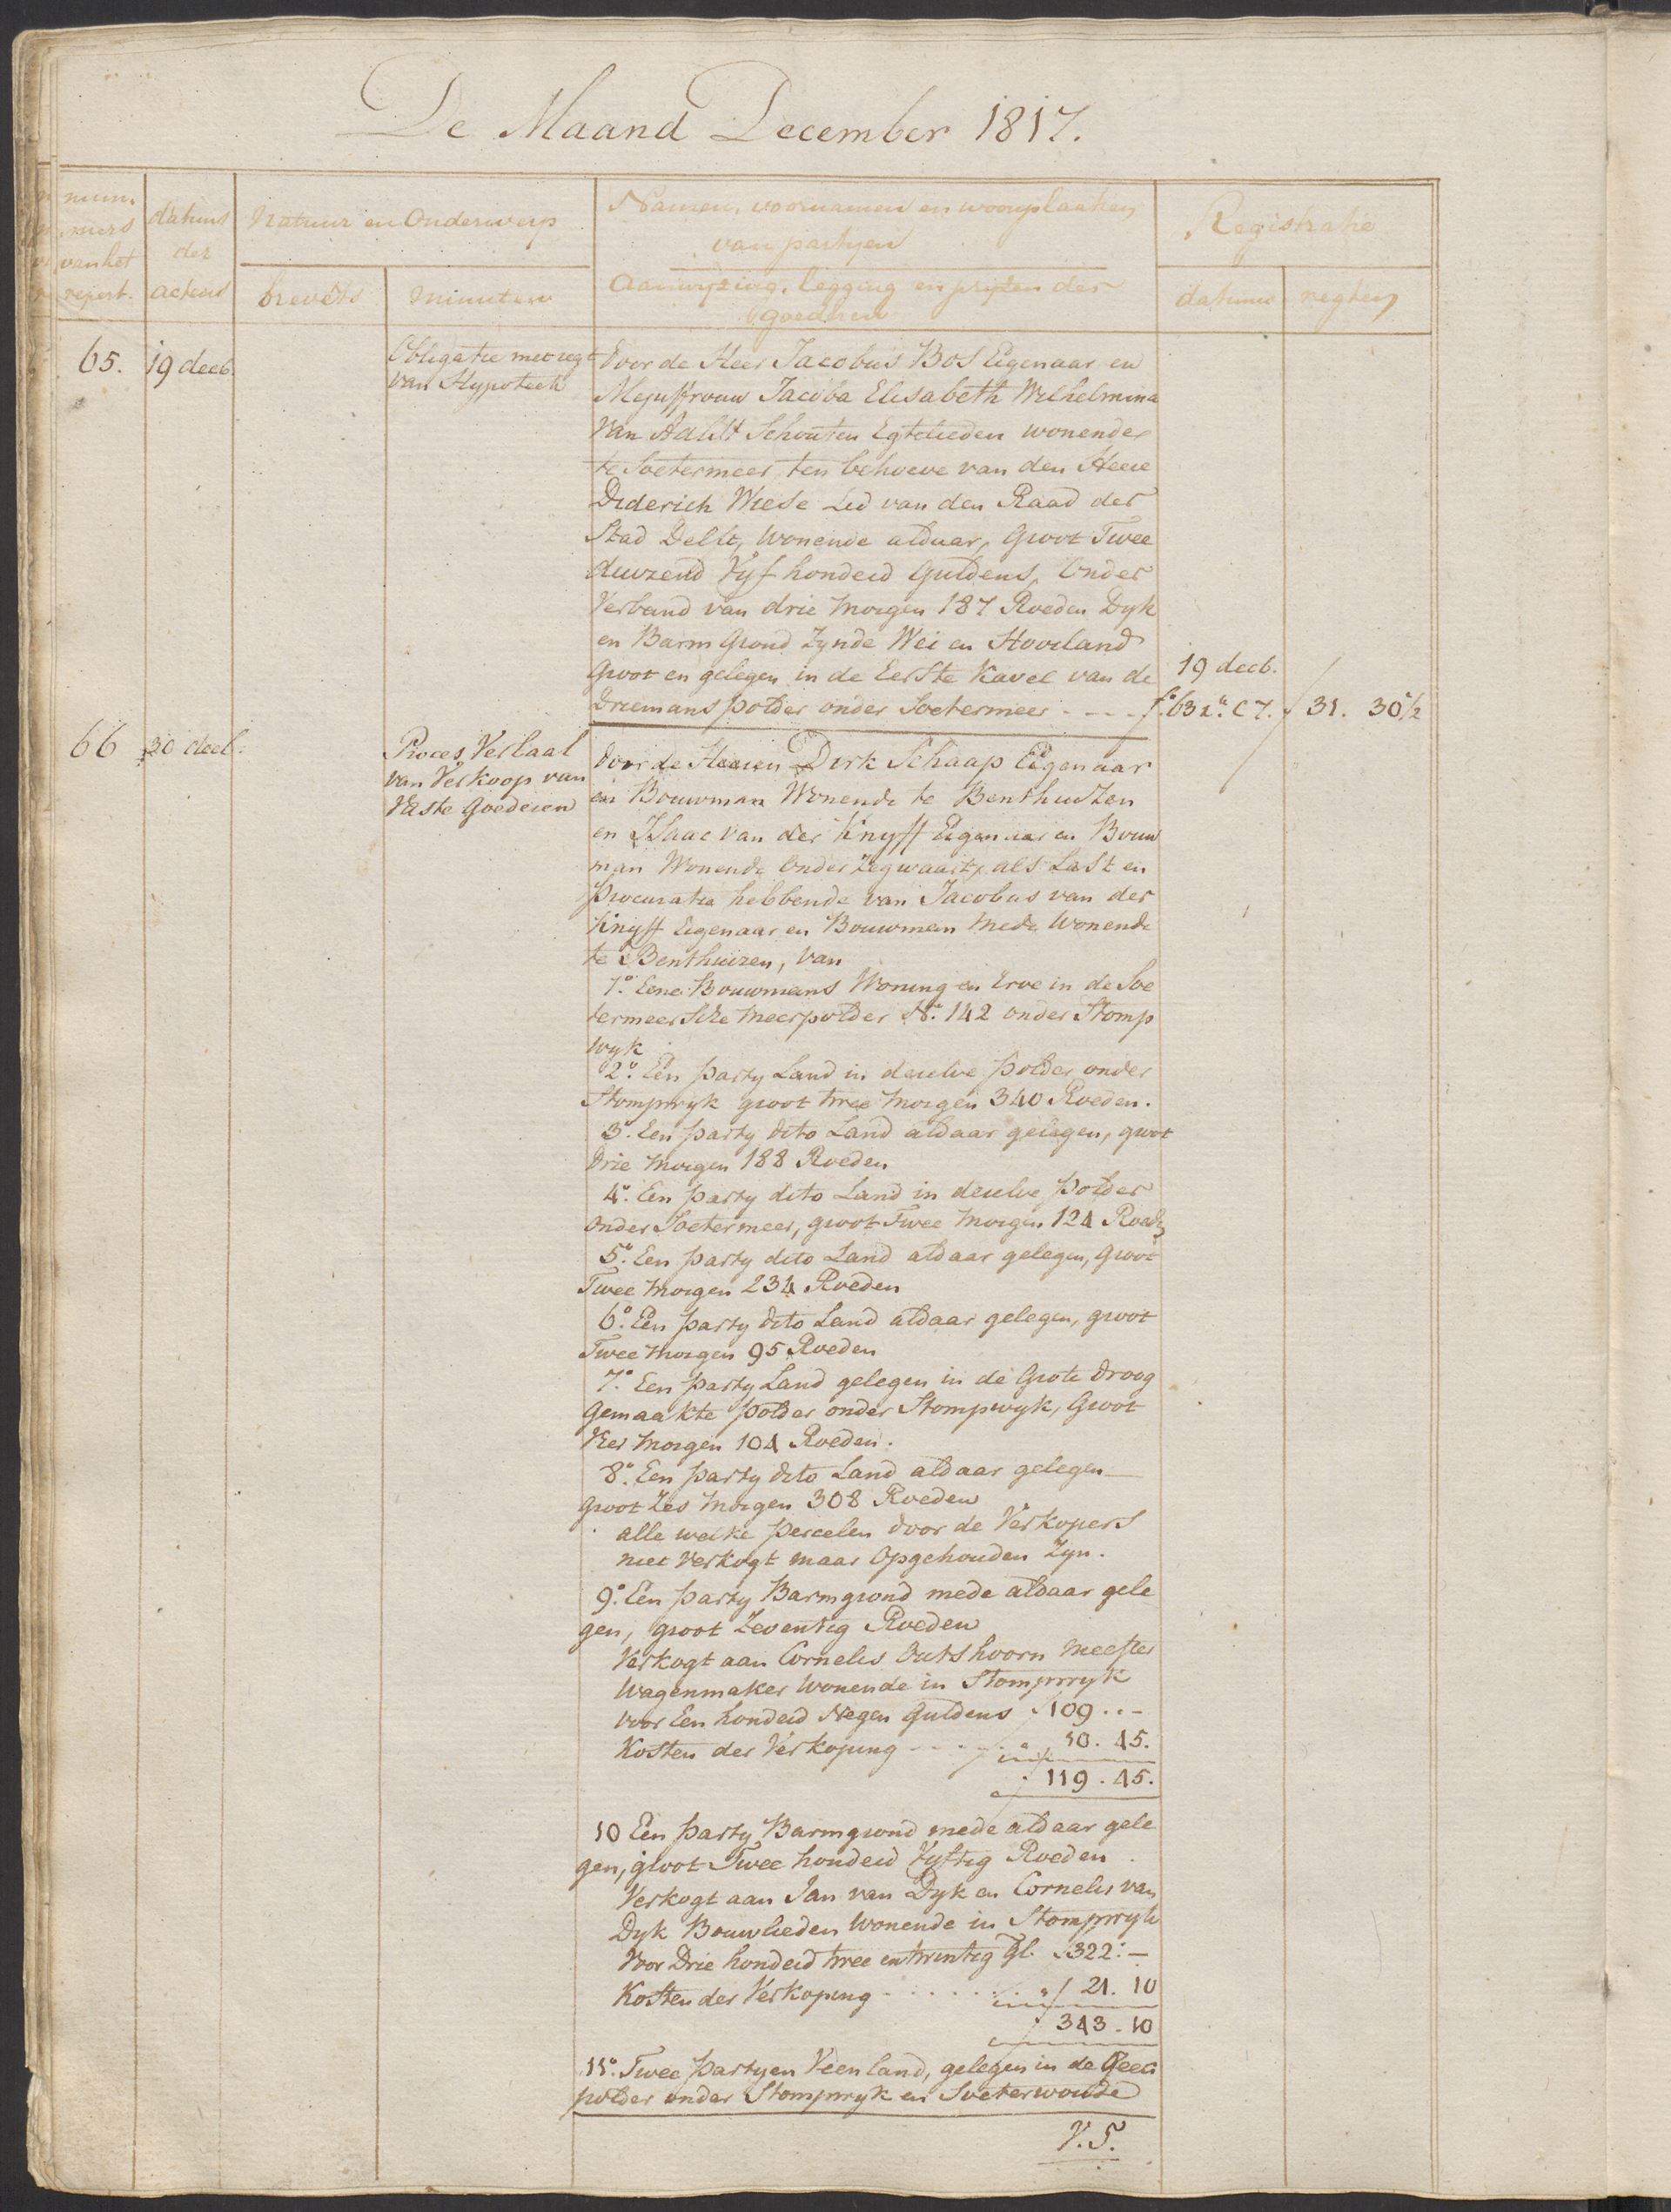 De Maand December 1817.
num.
mers
van het
repert.
datums
der
actens
Natuur en Onderwerp
brevets
minuten
Namen, voornamen en woonplaatsen
van partyen
Aanwyzing, legging en pryzen der
goederen
Registratie
datums
regten
65.
19 decb.
Obligatie met regt
van Hypoteek
door de Heer Jacobus Bos Eigenaar en
Mejuffrouw Jacoba Elisabeth Wilhelmina
van Schouten Egtelieden wonende
te Soetermeer, ten behoeve van den Heere
Diderich Wiese Lid van den Raad der
Stad Delft, Wonende alduar, Groot Twee
duizend Vyf honderd Guldens, Onder
Verband van drie Morgen 187 Roeden Dyk
en Barm Grond Zynde Wei en Hooiland
Groot en gelegen in de Eerste Kavel van de
Driemans polder onder Soetermeer - - - -
19 decb.
f.° 63 r.° C 7.
f 31. 30½
66
30 decb.
Proces Verbaal
van Verkoop van
Vaste Goederen
door de Heeren Dirk Schaap Eigenaar
en Bouwman Wonende te Benthuizen
en Isaac van der Knyff Eigenaar en Bouw
man Wonende Onder Zegwaart, als Last en
Procuratie hebbende van Jacobus van der
Knyff Eigenaar en Bouwman mede Wonende
te Benthuizen, van
1.° Eene Bouwmans Woning en Erve in de Soe
termeersche Meerpolder N.° 142 onder Stomp
wyk
2.° Een party Land in dezelve Polder onder
Stompwyk groot twee morgen 340 Roeden.
3.° Een party dito Land aldaar gelegen, groot
Drie Morgen 188 Roeden
4.° Een party dito Land in dezelve Polder
onder Soetermeer, groot Twee Morgen 124 Roedn
5.° Een party dito Land aldaar gelegen, Groot
Twee morgen 234 Roeden
6.° Een party dito Land aldaar gelegen, groot
Twee morgen 95 Roeden
7.° Een party Land gelegen in de Grote Droog
Gemaakte Polder onder Stompwyk, Groot
Vier Morgen 104 Roeden.
8.° Een party dito Land aldaar gelegen
Groot Zes Morgen 308 Roeden
alle welke Percelen door de Verkopers
niet Verkogt maar Opgehouden Zyn.
9.° Een party Barmgrond mede aldaar gele
gen, groot Zeventig Roeden
Verkogt aan Cornelis Outshoorn Meester
Wagenmaker Wonende in Stompwyk
voor Een honderd Negen Guldens f 109 . . -
Kosten der Verkoping - - - - - 10. 45.
f 119. 45.
10 Een party Barmgrond mede aldaar gele
gen, groot Twee honderd Vyftig Roeden
Verkogt aan Jan van Dyk en Cornelis van
Dyk Bouwlieden Wonende in Stompwyk
Voor Drie honderd twee entwintig Gl. f 322: -
Kosten der Verkoping - - - - - f 21. 10
f 343. 10
11.° Twee Partyen Veenland, gelegen in de Geer
polder onder Stompwyk en Soeterwoude
V. S.